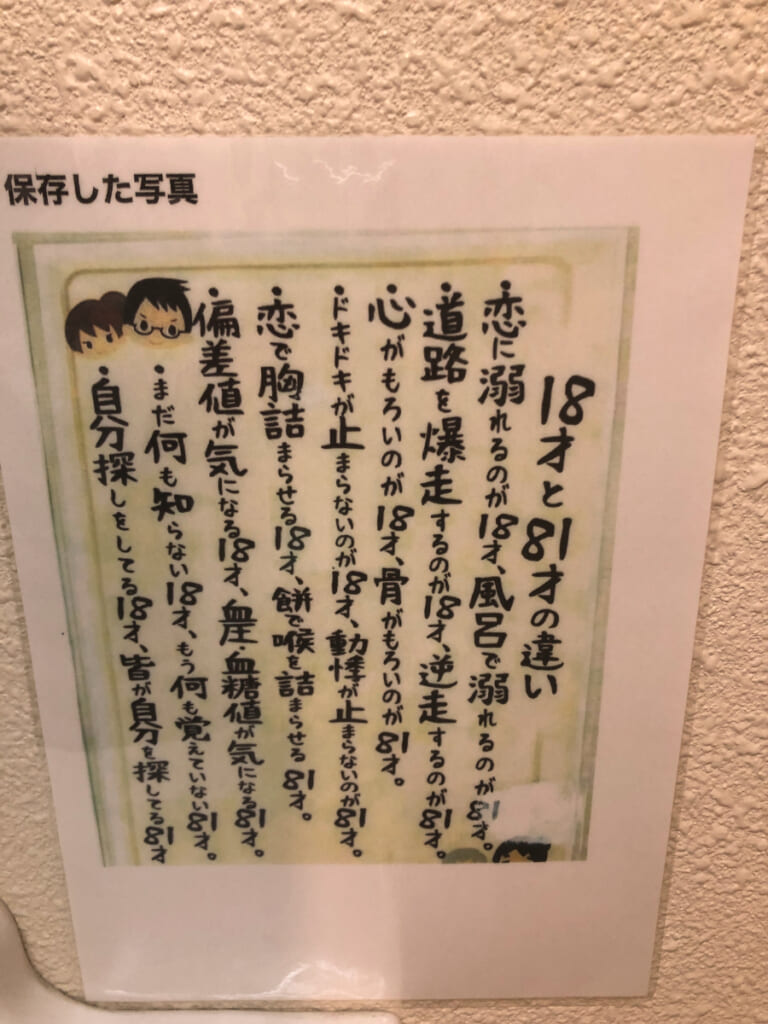 保存した写真
18才と81才の違い
・恋に溺れるのが18才、風呂で溺れるのが81才。
・道路を爆走するのが18才、逆走するのが81才。
・心がもろいのが18才、骨がもろいのが81才。
・ドキドキが止まらないのが18才、動悸が止まらないのが81才。
・恋で胸詰まらせる18才、餅で喉を詰まらせる81才。
・偏差値が気になる18才、血圧・血糖値が気になる81才。
・まだ何も知らない18才、もう何も覚えていない81才。
・自分探しをしてる18才、皆が自分を探してる81才